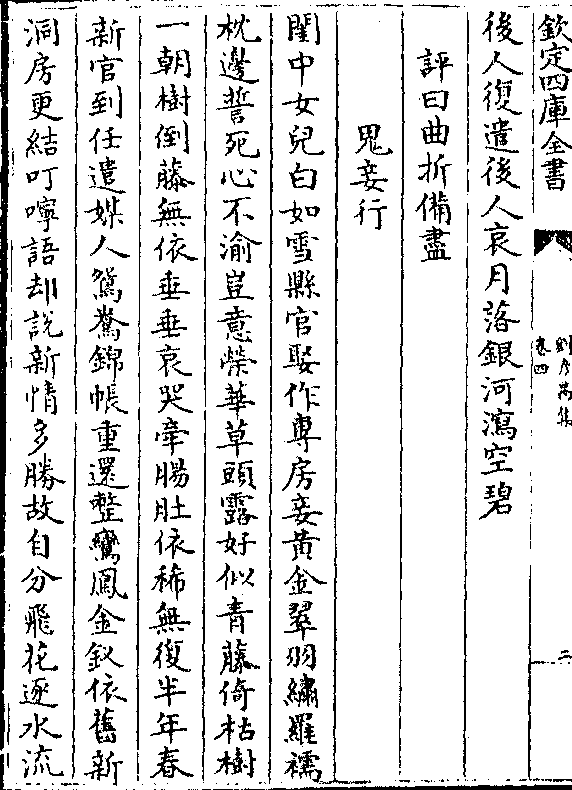 欽定四庫全書
劉彥昺集
卷四
二
後人復遣後人哀月落銀河瀉空碧
評曰曲折備盡
鬼妾行
閨中女兒白如雪縣官娶作專房妾黃金翠羽繡羅襦
枕邊誓死心不渝豈意榮華草頭露好似青藤倚枯樹
一朝樹倒藤無依垂垂哀哭牽腸肚依稀無復半年春
新官到任遣媒人鴛鴦錦帳重還整鸞鳳金釵依舊新
洞房更結叮嚀語却說新情多勝故自分飛花逐水流